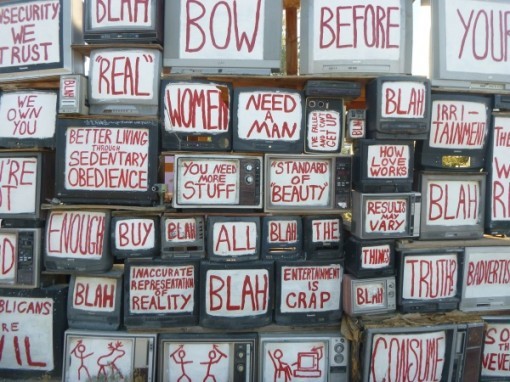 NSECURITY
WE
TRUST
BLAH
BOW
BEFORE
YOUR
BLAH
"REAL"
WE
OWN
YOU
WOMEN
NEED
A
MAN
I'VE FALLEN
AND I CAN'T
GET
UP
BLAH
IRRI-
TAINMENT
BETTER LIVING
THROUGH
SEDENTARY
OBEDIENCE
YOU NEED
MORE
STUFF
"STANDARD"
OF
"BEAUTY"
HOW
LOVE
WORKS
BLAH
RESULTS
MAY
VARY
ENOUGH
BUY
BLAH
ALL
BLAH
THE
THINGS
BLAH
INACCURATE
REPRESENTATION
OF
REALITY
BLAH
ENTERTAINMENT
IS
CRAP
BLAH
TRUTH
BADVERTIS
BLICANS
RE
VIL
CONSUME
SO
THE
NEVE